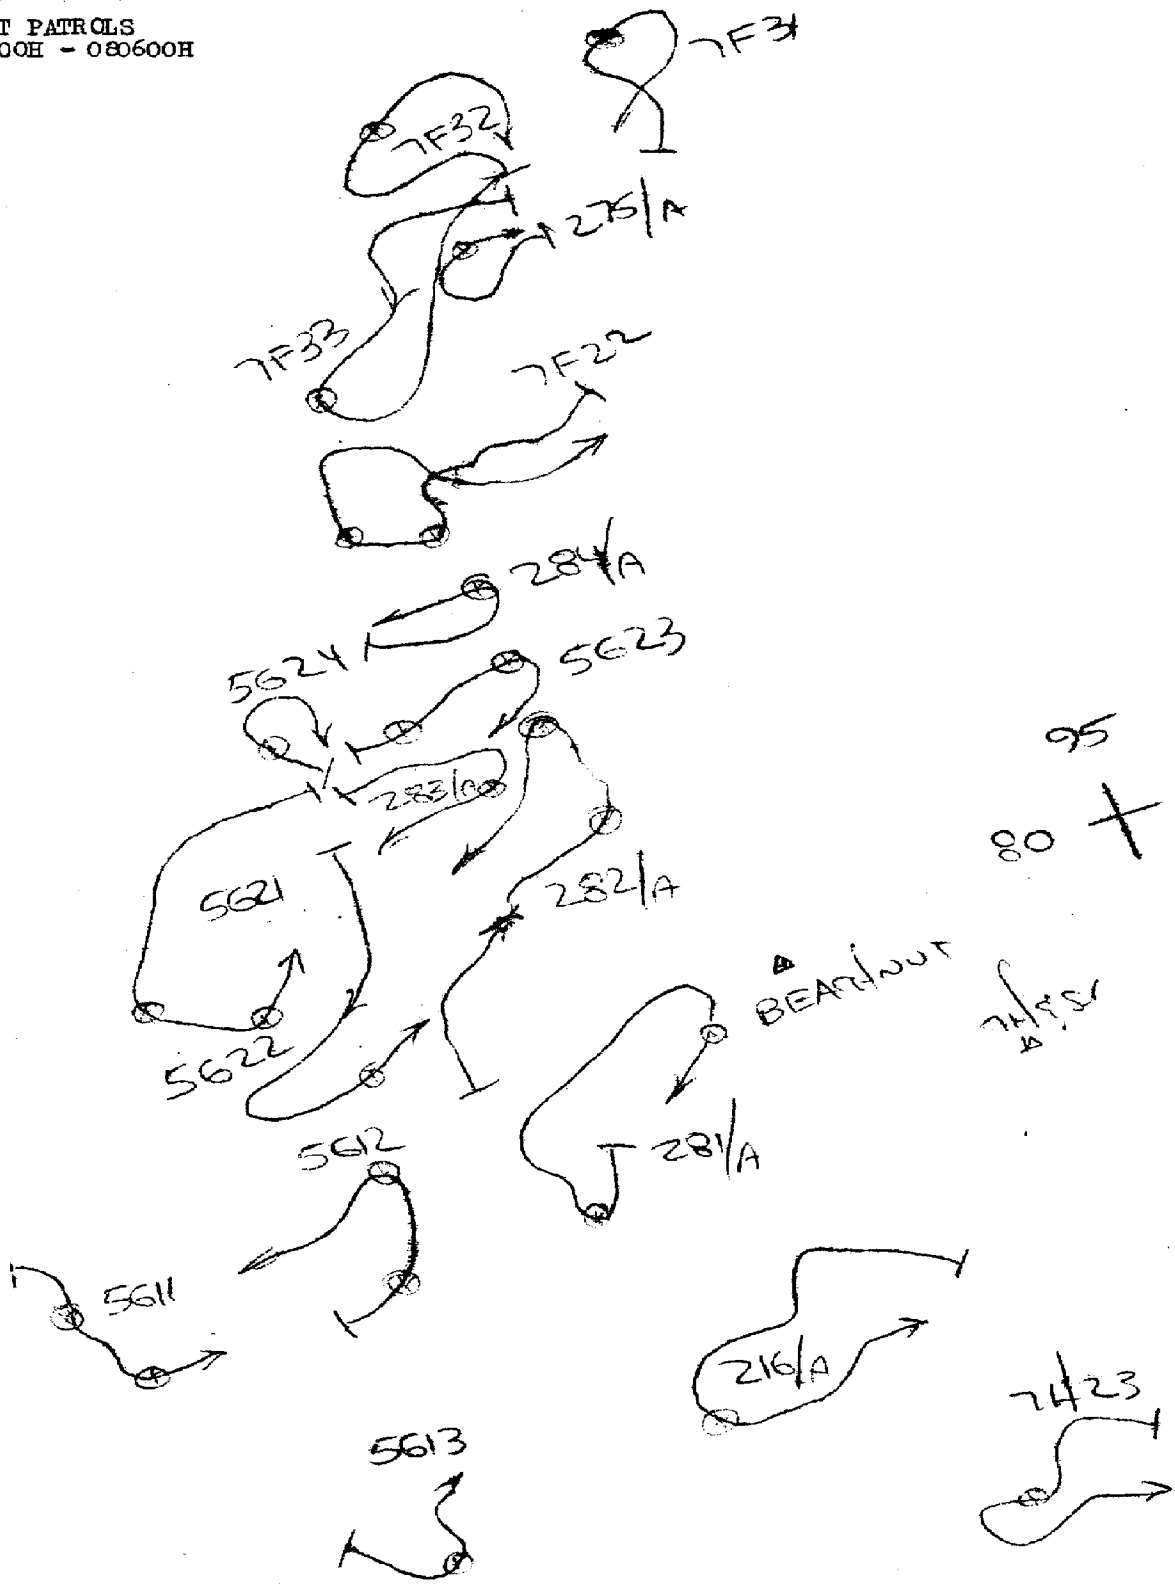 T PATROLS
00H - 080600H
7F31
7F32
275/A
7F33
7F22
284/A
5624
5623
283/A
95
80
5621
282/A
BEARHNUT
5622
5612
281/A
5611
216/A
7H23
5613